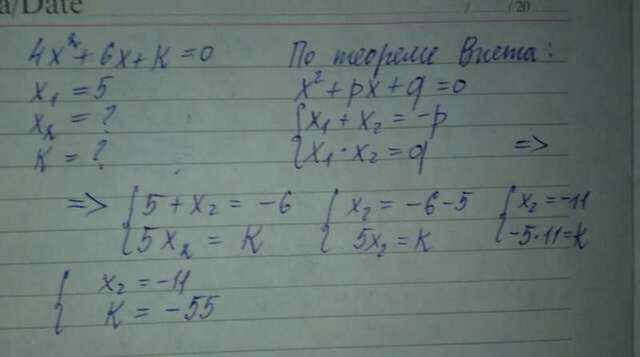 a/Date
/ /20
4x²+6x+K=0
x₁=5
x₂=?
K=?
По теореме Виета:
x²+px+q=0
{x₁+x₂=-p
{x₁·x₂=q =>
=> {5+x₂=-6 {x₂=-6-5 {x₂=-11
{5x₂=K {5x₂=K {-5·11=K
{x₂=-11
{K=-55